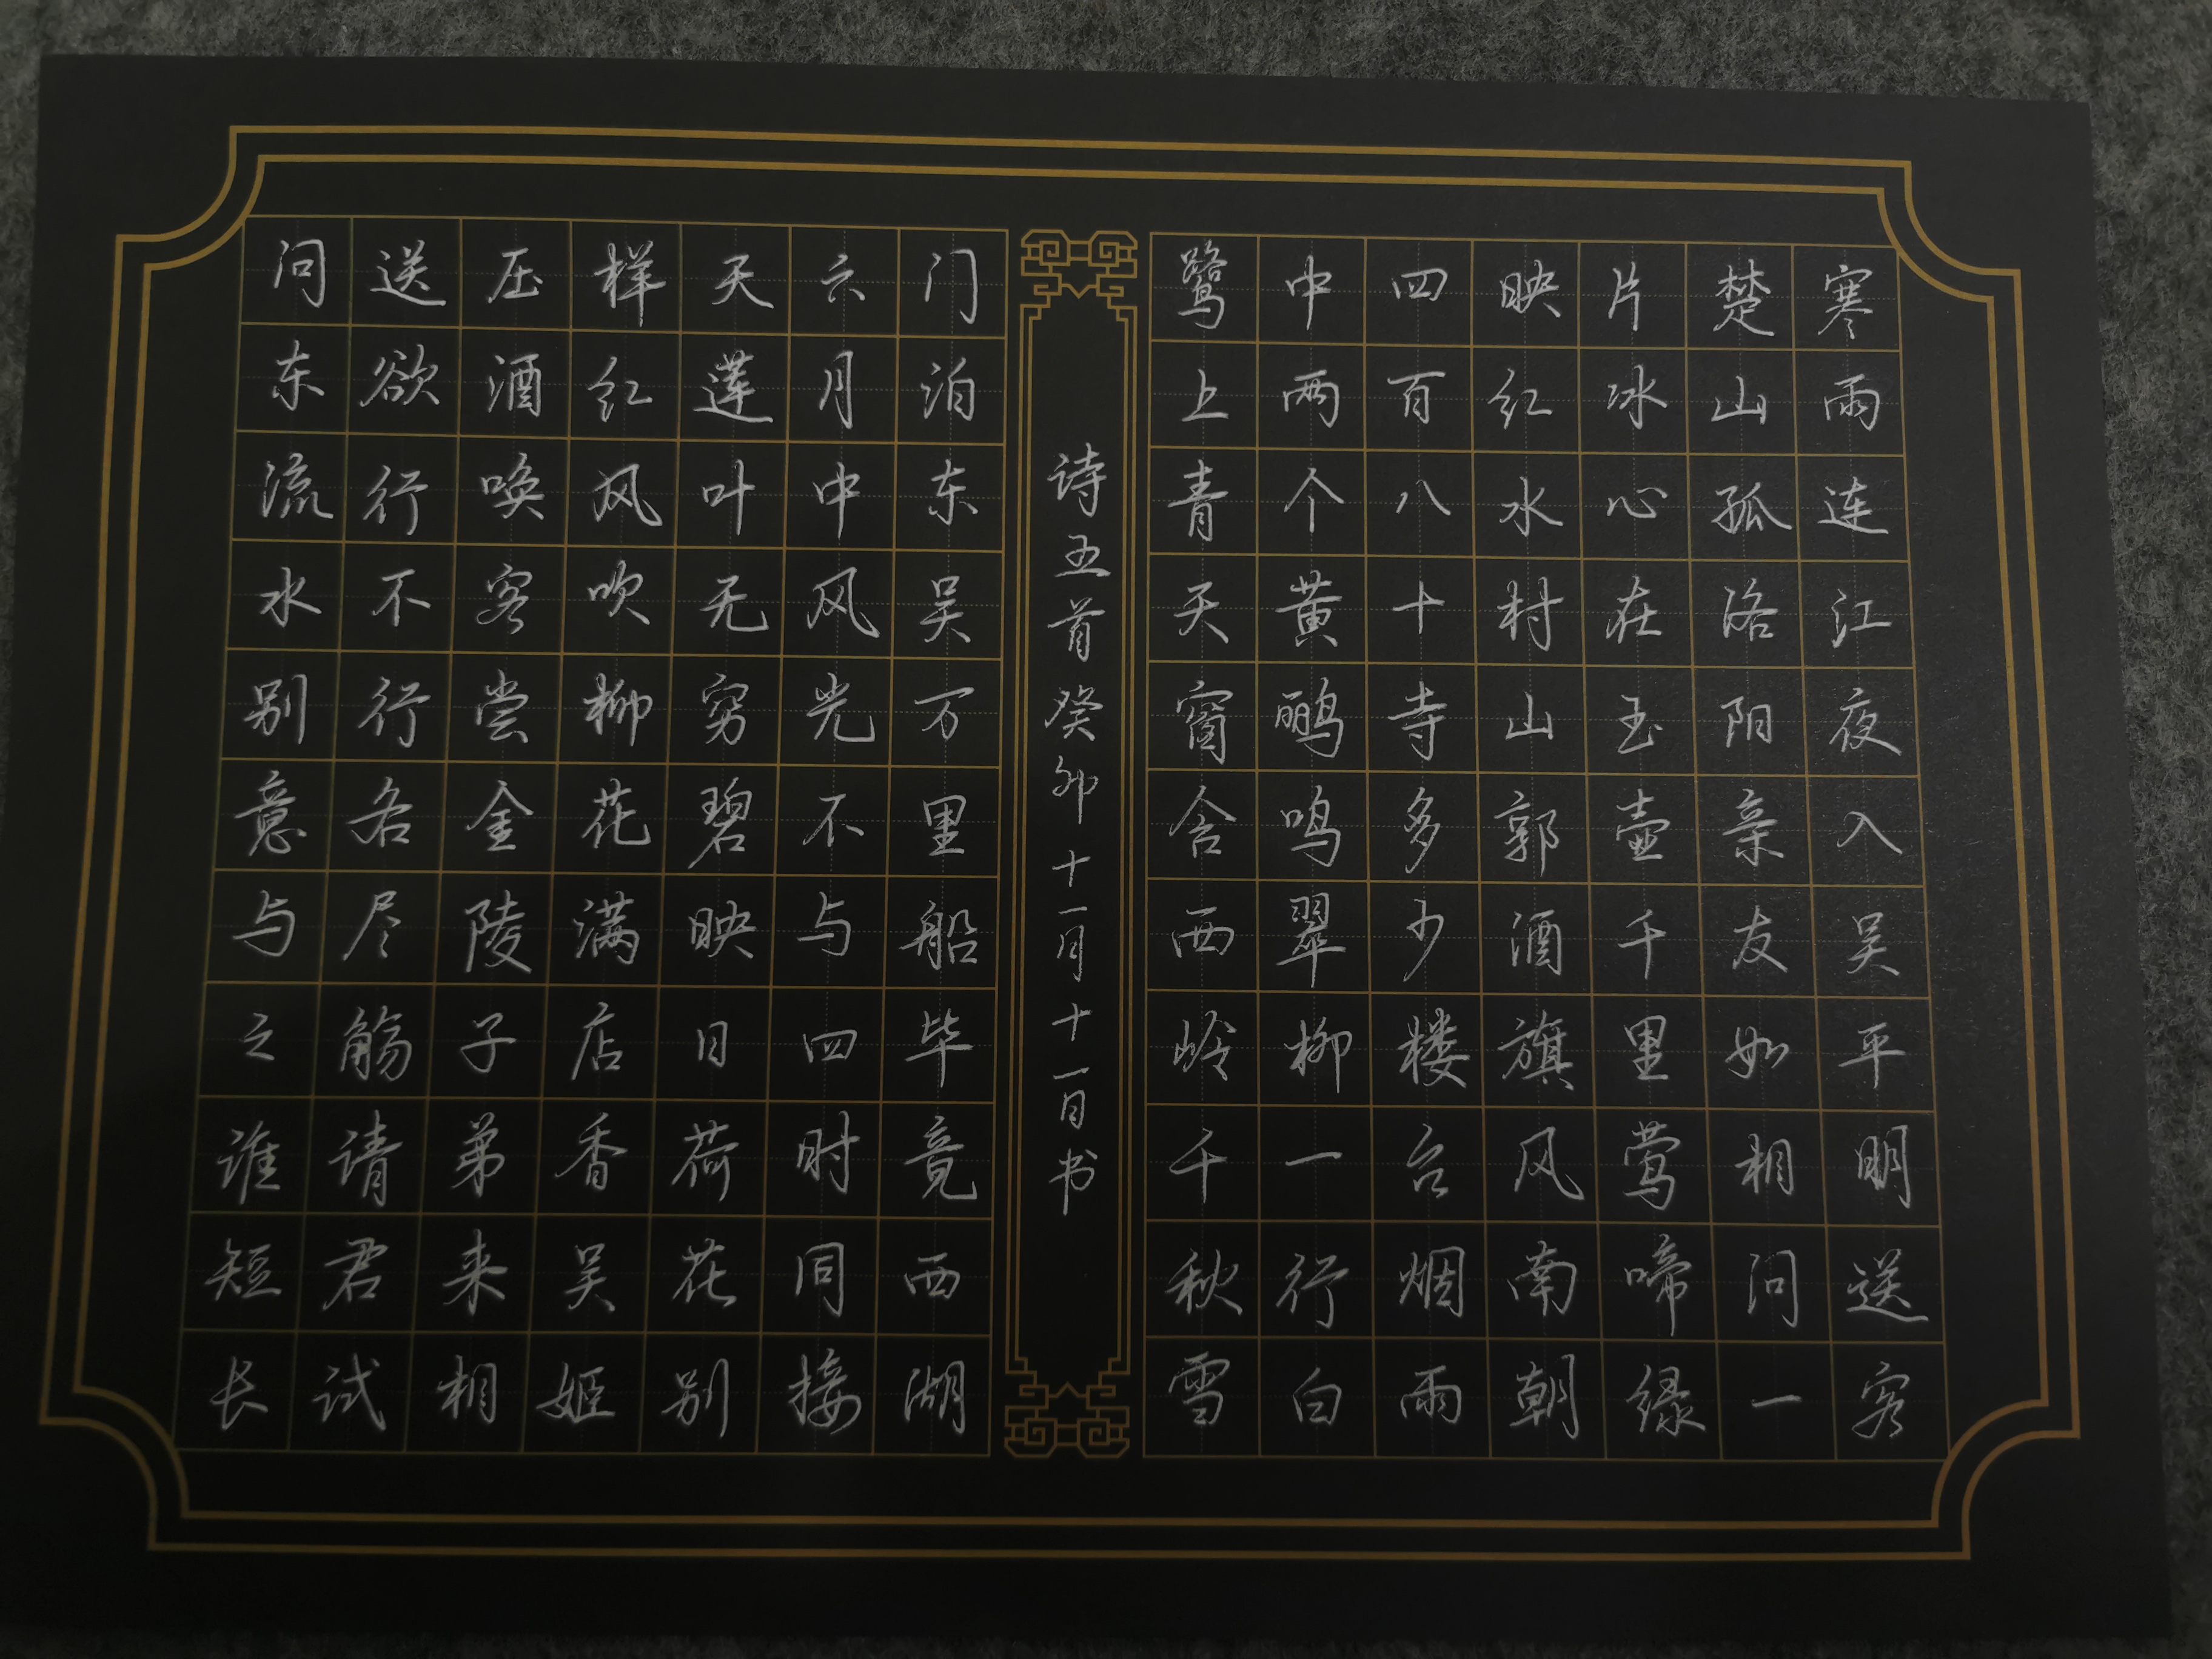 寒雨连江夜入吴平明送客
楚山孤洛阳亲友如相问一
片冰心在玉壶千里莺啼绿
映红水村山郭酒旗风南朝
四百八十寺多少楼台烟雨
中两个黄鹂鸣翠柳一行白
鹭上青天窗含西岭千秋雪
诗五首癸卯十一月十一日书
门泊东吴万里船毕竟西湖
六月中风光不与四时同接
天莲叶无穷碧映日荷花别
样红风吹柳花满店香吴姬
压酒唤客尝金陵子弟来相
送欲行不行各尽觞请君试
问东流水别意与之谁短长